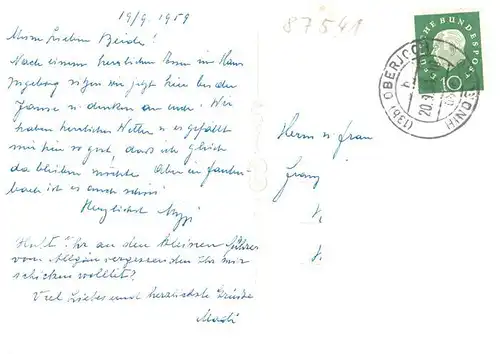 19/9. 1959
87541
Meine lieben Beide!
Nach einem herrlichen in Haus
Ingeborg sitzen wir jetzt hier bei der
Jause u. denken an euch. Wir
haben herrliches Wetter u. es gefällt
mir hier so gut, dass ich gleich
da bleiben möchte. Aber in
bach ist es auch schön!
Herzlichst
Habt Ihr an den kleinen Führer
vom Allgäu vergessen den Ihr mir
schicken wolltet?
Viel Liebes und herzlichste Grüsse
Madi
Herrn u. Frau
Franz
DEUTSCHE BUNDESPOST
10
(13b) OBERJOCH
20.9.